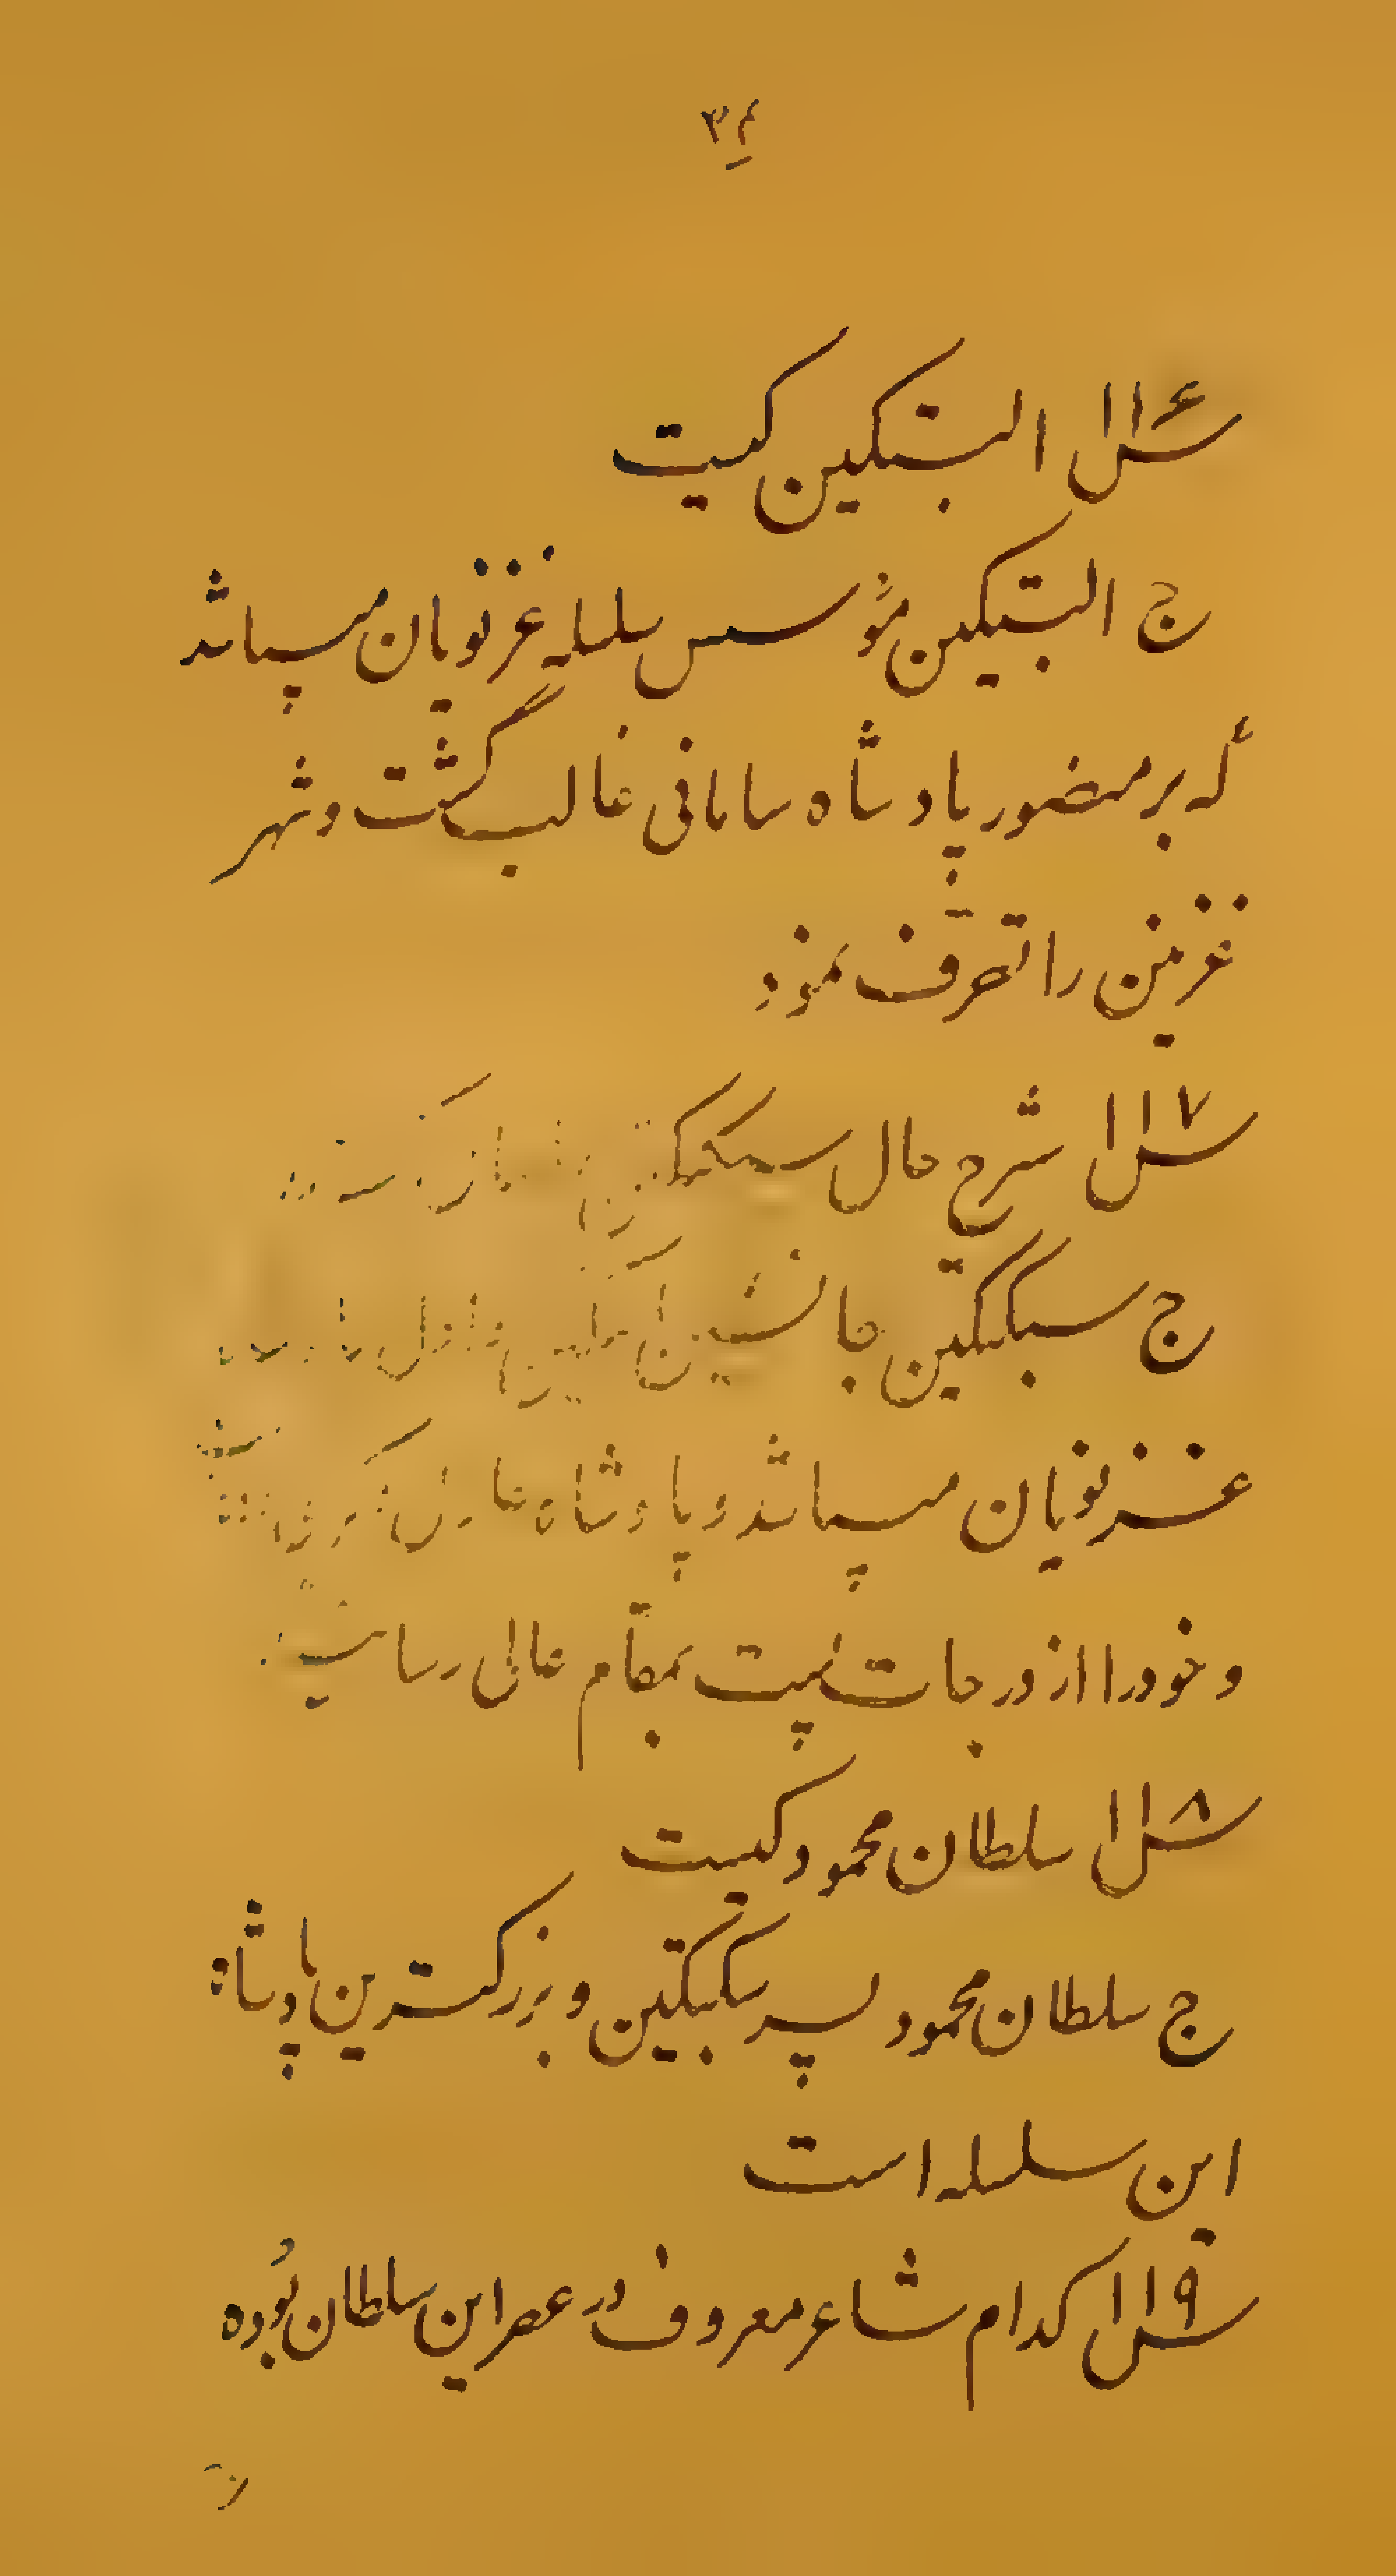 ۳۴
س ۱۱۶ البتکین کیست
ج البتکین مؤسس سلسله غزنویان میباشد
که بر منصور پادشاه سامانی غالب گشت و شهر
غزنین را تصرف نمود
س ۱۱۷ شرح حال سبکتکین
ج سبکتکین جانشین
غزنویان میباشد و پادشاه
و خود را از درجات پست بمقام عالی رسانید
س ۱۱۸ سلطان محمود کیست
ج سلطان محمود پسر سبکتکین و بزرگترین پادشاه
این سلسله است
س ۱۱۹ کدام شاعر معروف در عصر این سلطان بوده